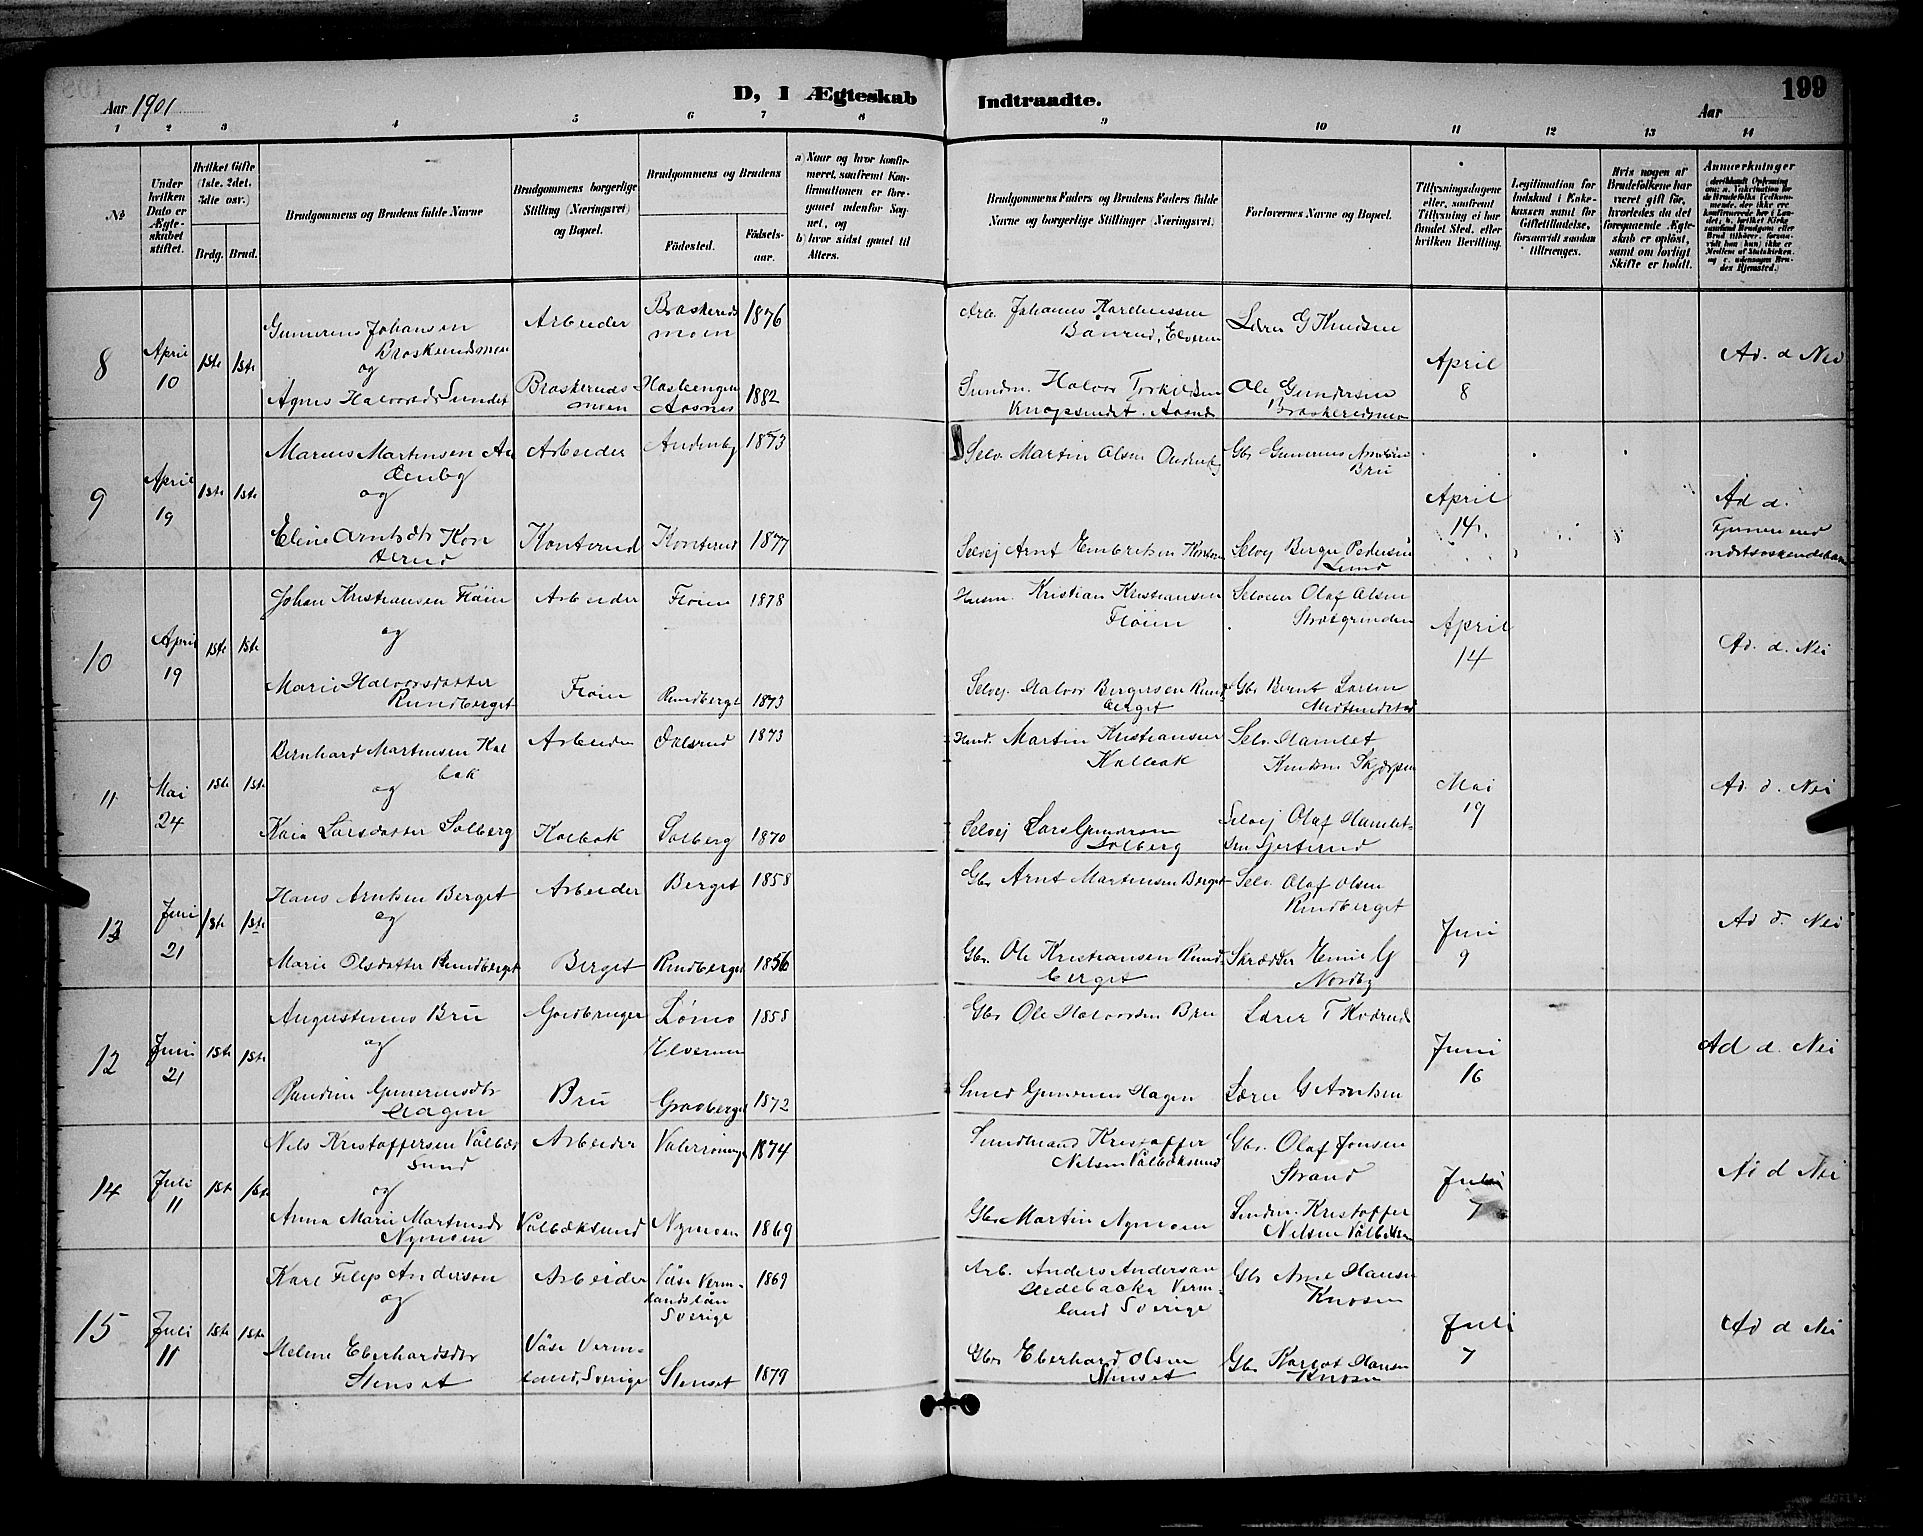 Aar 1901
D, I Ægteskab
Indtraadte.
Aar
199
1 2 3 4 5 6 7 8 9 10 11 12 13 14
No
Under hvilken Dato er Ægteskabet stiftet.
Hvilket Gifte (1ste, 2det, 3die osv.)
Brdg. Brud.
Brudgommens og Brudens fulde Navne
Brudgommens borgerlige Stilling (Næringsvei) og Bopæl.
Brudgommens og Brudens
Födested.
Födselsaar.
a) Naar og hvor konfirmeret, samt om Konfirmationen er foregaaet udenfor Sognet, og
b) hvor sidst gaaet til Alters.
Brudgommens Faders og Brudens Faders fulde Navne og borgerlige Stillinger (Næringsvei).
Forlovernes Navne og Bopæl.
Tillysningsdagene eller, saafremt Tillysning ei har fundet Sted, efter hvilken Bevilling.
Legitimation for Indskud i Enkekassen samt for Giftetilladelse, forsaavidt saadan tiltrænges.
Hvis nogen af Brudefolkene har været gift før, hvorledes da det foregaaende Ægteskab er oplöst, samt om lovligt Skifte er holdt.
Anmærkninger
8 April 10 1ste 1ste
Gunerius Johansen Braskerudsmoen
og
Agnes Halvorsdr Sundet
Arbeider
Braskerudsmoen
Braskeruds moen 1876
Hasleengen Aasnes 1882
Arb. Johannes
Sundm. Halvor Torkildsen Knapsundet. Aasnes
Lærer G Knudsen
Ole Gundersen
April 8
Ad. d Nei
9 April 19 1ste 1ste
Marius Martinsen Audenby
og
Eline Arntsdr Konterud
Arbeider
Konterud
Audenby 1873
Konterud 1877
Selv. Martin Olsen Audenby
Selvej Arnt Embretsen
Gbr Gunerius Bru
Selvej Berger Pedersen Lund
April 14
Ad d.
10 April 19 1ste 1ste
Johan Kristiansen Fløien
og
Marie Halvorsdatter Rundberget
Arbeider
Fløien
Fløien 1878
Rundberget 1873
Husm. Kristian Kristiansen Fløien
Selvej. Halvor Bergersen Rundberget
Selveier Olaf Olsen
Gbr Bernt Larsen
April 14
Ad. d. Nei
11 Mai 24 1ste 1ste
Bernhard Martinsen Kalbak
og
Kaia Larsdatter Solberg
Arbeider
Kalbak
1873
Solberg 1870
Martin Kristiansen Kalbak
Selvej Lars Gundersen Solberg
Selv. Hamlet Knudsen
Selvej Olaf Hamletsen
Mai 19
Ad. d. Nei
13 Juni 21 1ste 1ste
Hans Arntsen Berget
og
Marie Olsdatter Rundberget
Arbeider
Berget
Berget 1858
Rundberget 1856
Gbr Arnt Martinsen Berget
Gbr. Ole Kristiansen Rundberget
Selv. Olaf Olsen Rundberget
Skrædder G Nordby
Juni 9
Ad d. Nei
12 Juni 21 1ste 1ste
Augustinus Bru
og
Pauline Guneriusdtr Hagen
Gaardbruger
Bru
Lømo Elverum 1858
Gravberget 1872
Gbr Ole Halvorsen Bru
Smed Gunerius Hagen
Lærer T Kværnd
Lærer G Arntsen
Juni 16
Ad d. Nei
14 Juli 11 1ste 1ste
Nils Kristoffersen Vålbæksund
og
Anna Marie Martinsdr Nymoen
Arbeider
Vålbæksund
1874
Nymoen 1869
Sundmand Kristoffer Nilsen Vålbæksund
Gbr Martin Nymoen
Gbr. Olaf Jonsen Strand
Sundm. Kristoffer Nilsen
Juli 7
Ad d Nei
15 Juli 11 1ste 1ste
Karl Filip Anderson
og
Helene Eberhardsdtr Stenset
Arbeider
Väse Vermland, Sverige
Väse Vermlandslän Sverige 1869
Stenset 1879
Arb. Anders Anderson Vermland Sverige
Gbr Eberhard Olsen Stenset
Gbr Arne Hansen Knosen
Gbr Hansen Knosen
Juli 7
Ad d Nei